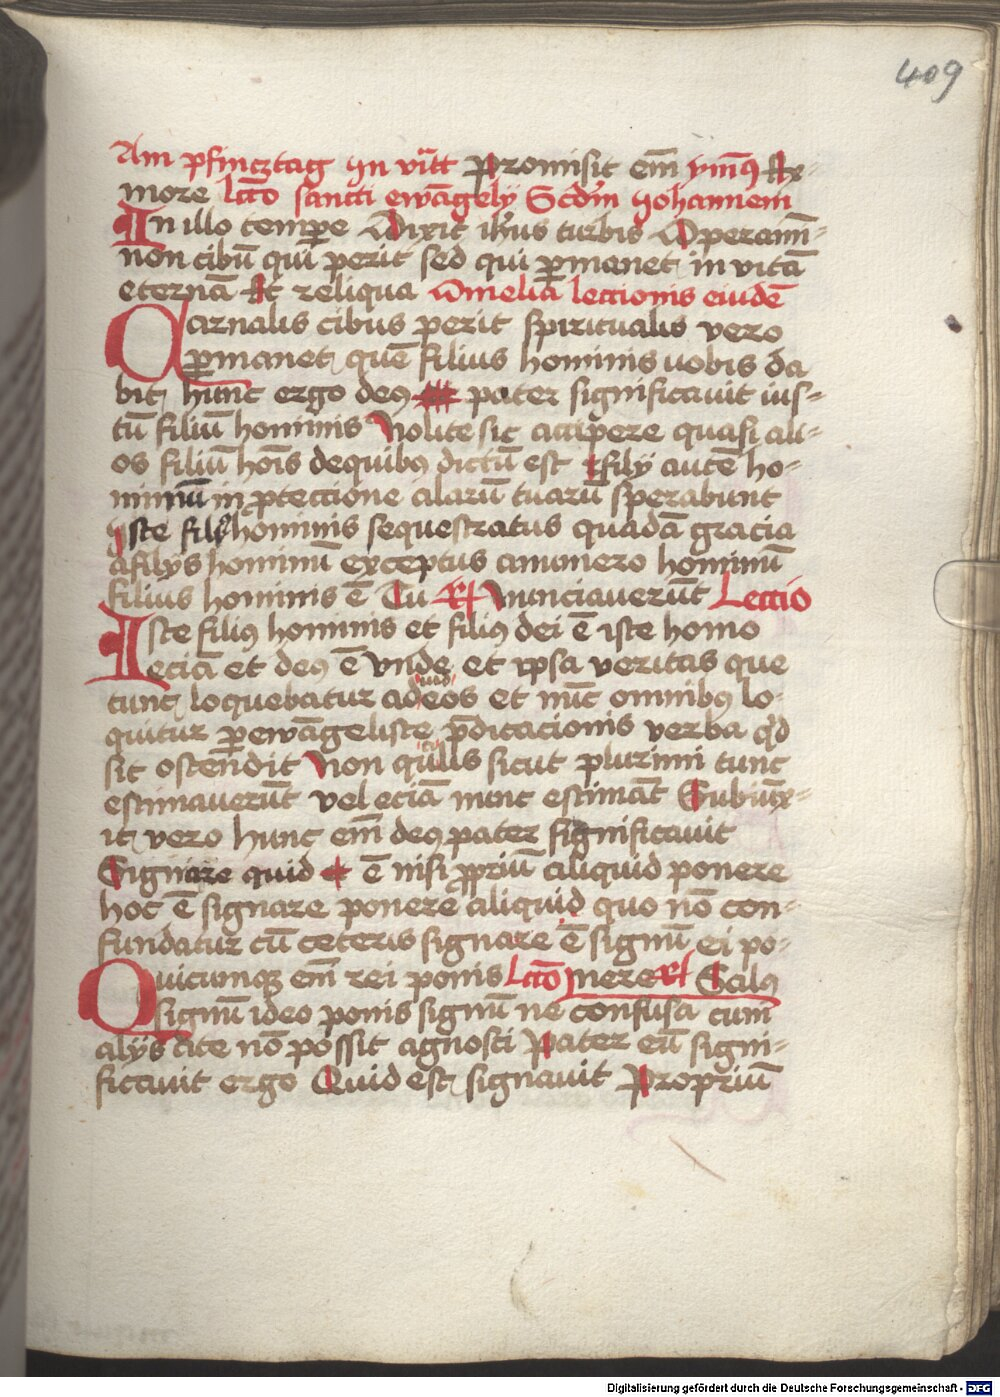 409
Am pfincztag Jn vītt Promisit em̄ ymn9 Ex-
more lcc̄o sancti ewāgely Scd̄m Johannem
In illo tempe Dixit ih̄us turbis Operamī-
non cibū qui perit sed qui ꝑmanet in vitā
eternā Et reliqua Omelia leccionis eiusdē
Carnalis cibus perit spiritualis vero
ꝑmanet quē filius hominis uobis da
bit hunc ergo deꝰ pater significauit ius-
tū filiū hominis Nolite sic accipere quasi ali-
os filiū hoīs de quibꝰ dictū est filÿ autē ho-
minū in ꝓteccione alarū tuarū sperabunt
Iste filꝰ hominis sequestratus quadā gracia
a filÿs hominū exceptus a numero hominū
filius hominis ē Tu R̶ Annunciauerūt Leccio
Iste filiꝰ hominis et filiꝰ dei ē iste homo
eciā et deꝰ ē vnde et ipsa veritas que
tunc loquebatur ad eos et nūc omnibꝰ lo-
quitur ꝑ ewāgeliste p̄dicacionis verba qd
sic ostendit Non qualis sicut plurimi tunc
estimauerūt vel eciā nunc estimāt Subiūx-
it vero hunc em̄ deꝰ pater significauit
Signare quid ē nisi ꝓpriū aliquid ponere
hoc ē signare ponere aliquid quo nō con-
fundatur cū ceteris signare ē signū ei po-
Quicumqꝫ em̄ rei ponis Lcc̄o nere R̶ Salus
signū ideo ponis signū ne confusa cum
alÿs a te nō possit agnosci Pater eū signi-
ficauit ergo Quid est signauit Propriū
Digitalisierung gefördert durch die Deutsche Forschungsgemeinschaft - DFG